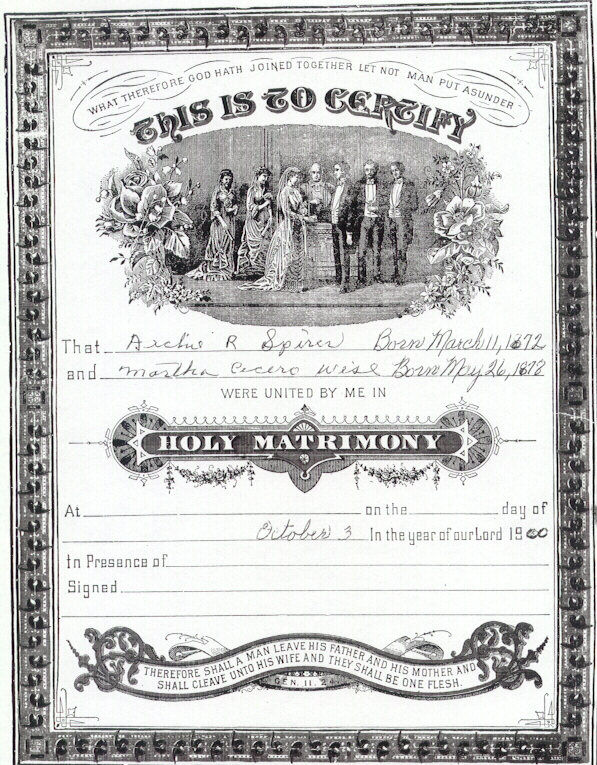 WHAT THEREFORE GOD HATH JOINED TOGETHER LET NOT MAN PUT ASUNDER
THIS IS TO CERTIFY
That Archie R Spires Born March 11, 1872
and Martha Cicero Wise Born May 26, 1878
WERE UNITED BY ME IN
HOLY MATRIMONY
At on the day of
October 3 In the year of our Lord 1900
In Presence of
Signed
THEREFORE SHALL A MAN LEAVE HIS FATHER AND HIS MOTHER AND
SHALL CLEAVE UNTO HIS WIFE AND THEY SHALL BE ONE FLESH.
GEN. 11. 24.